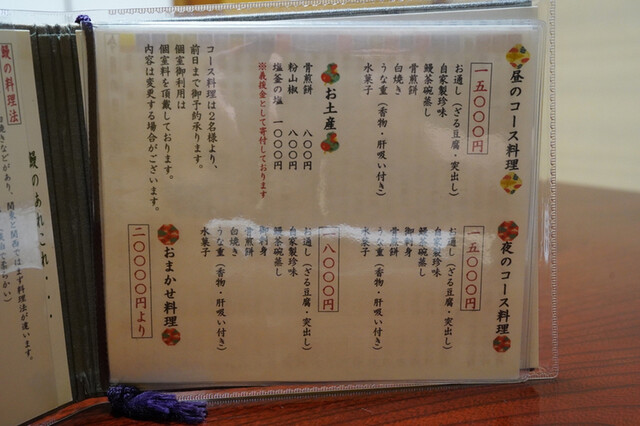 昼のコース料理
一五〇〇〇円
お通し(ざる豆腐・突出し)
自家製珍味
鰻茶碗蒸し
骨煎餅
白焼き
うな重(香物・肝吸い付き)
水菓子
お土産
骨煎餅 八〇〇円
粉山椒 八〇〇円
塩釜の塩 一〇〇〇円
※義援金として寄付しております
コース料理は2名様より、
前日まで御予約承ります。
個室御利用は
個室料を頂戴しております。
内容は変更する場合がございます。
夜のコース料理
一五〇〇〇円
お通し(ざる豆腐・突出し)
自家製珍味
鰻茶碗蒸し
御刺身
骨煎餅
うな重(香物・肝吸い付き)
水菓子
一八〇〇〇円
お通し(ざる豆腐・突出し)
自家製珍味
鰻茶碗蒸し
御刺身
骨煎餅
白焼き
うな重(香物・肝吸い付き)
水菓子
おまかせ料理
二〇〇〇〇円より
鰻の料理法
鰻のあれこれ・・・
焼きなどがあり、関東と関西ではまず料理法が違います。